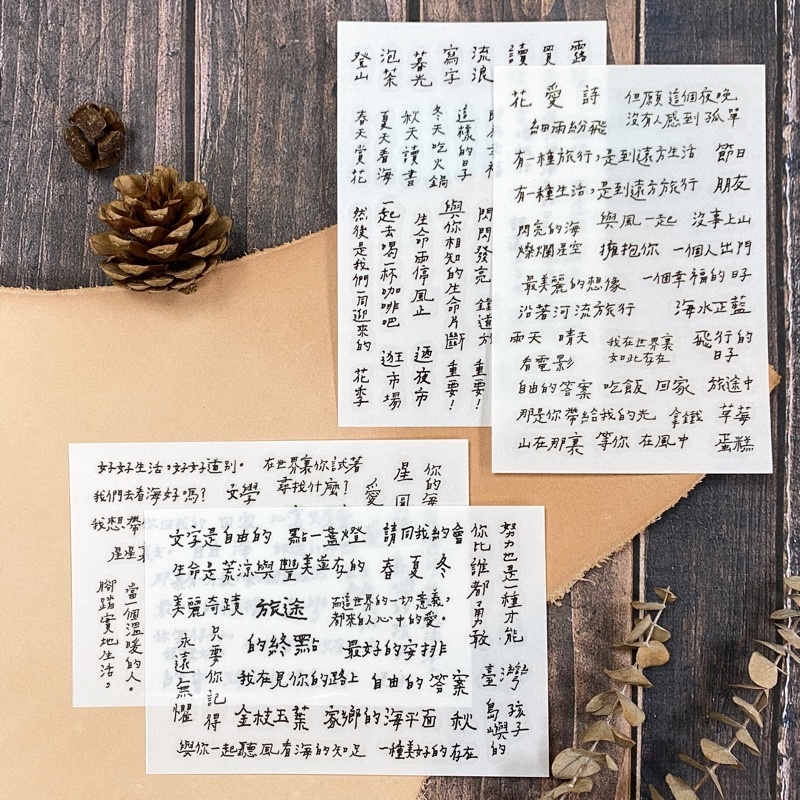 登山 泡茶 暮光 寫字 流浪 讀 買 露
春天賞花 夏天看海 秋天讀書 冬天吃火鍋 這樣的日子
然後是我們一同迎來的 花季
一起去喝一杯咖啡吧 逛市場
生命雨停風止 逛夜市
與你相知的生命片斷 重要!
閃閃發亮 重要!
花 愛 詩
但願這個夜晚
沒有人感到孤單
細雨紛飛
有一種旅行,是到遠方生活 節日
有一種生活,是到遠方旅行 朋友
閃亮的海 與風一起 沒事上山
燦爛星空 擁抱你 一個人出門
最美麗的想像 一個幸福的日子
沿著河流旅行 海水正藍
雨天 晴天 我在世界裏 如此存在 飛行的日子
看電影
自由的答案 吃飯 回家 旅途中
那是你帶給我的光 拿鐵 草莓
山在那裏 等你 在風中 蛋糕
好好生活,好好道別。 在世界裏你試著
尋找什麼?
我們去看海好嗎? 文學 愛
星
你的
我想帶
星星
當一個溫暖的人。
腳踏實地生活。
文字是自由的 點一盞燈 請同我約會
生命是荒涼與豐美並存的 春 夏 冬
美麗奇蹟 旅途 而這世界的一切意義,
都來自人心中的愛。
的終點 最好的安排
我在見你的路上 自由的答案
金枝玉葉 家鄉的海平面 秋
與你一起聽風看海的知足 一種美好的存在
永遠無懼
只要你記得
你比誰都勇敢
努力也是一種才能
臺灣
島嶼的
孩子